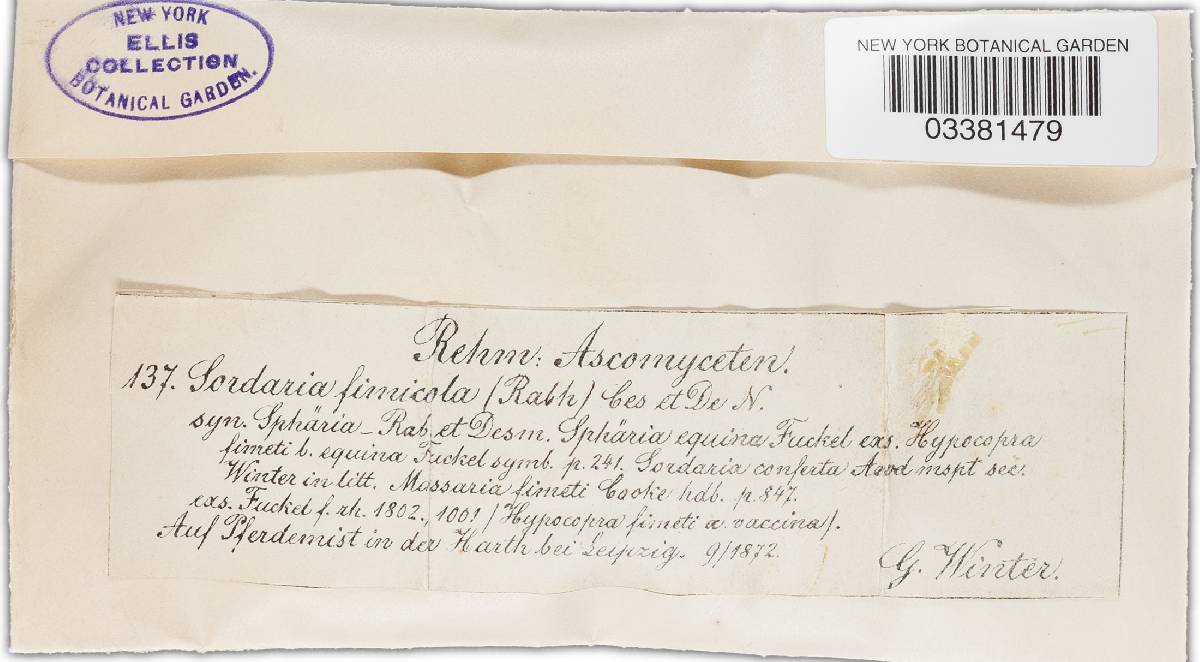 NEW YORK
ELLIS
COLLECTION
BOTANICAL GARDEN.
NEW YORK BOTANICAL GARDEN
03381479
Rehm: Ascomyceten.
137. Sordaria fimicola (Rabh) Ces et De N.
syn. Sphäria _ Rab. et Desm. Sphäria equina Fuckel exs. Hypocopra
fimeti b. equina Fuckel symb. p. 241. Sordaria conferta Awd mspt sec.
Winter in litt. Massaria fimeti Cooke hdb. p. 847.
exs. Fuckel f. rh. 1802., 1001 (Hypocopra fimeti a vaccina).
Auf Pferdemist in der Harth bei Leipzig. 9/1872.
G. Winter.